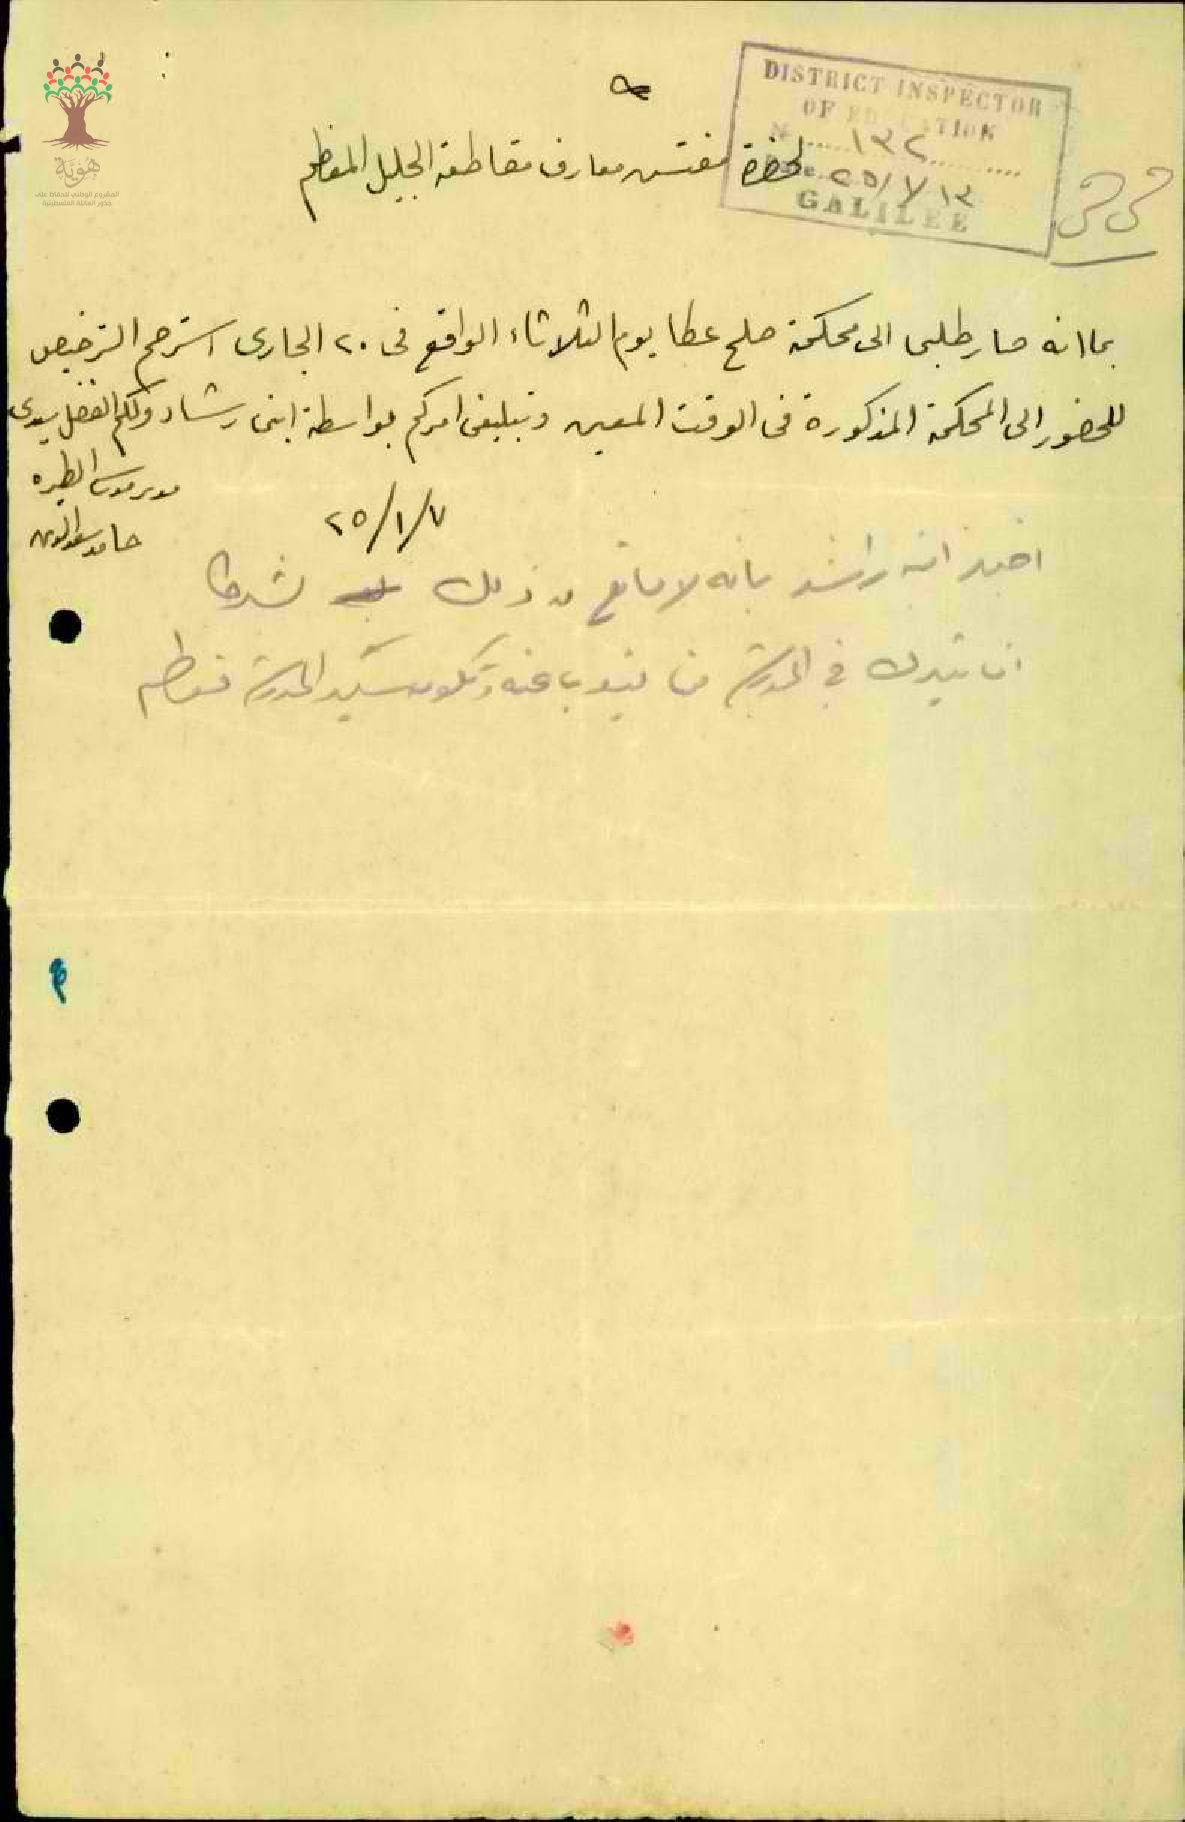 هوية
المشروع الوطني للحفاظ على
جذور العائلة الفلسطينية
DISTRICT INSPECTOR
OF EDUCATION
١٣٢
١٣/١/٢٥
GALILEE
لحضرة مفتش معارف مقاطعة الجليل المعظم
بما انه صار طلبي الى محكمة صلح عكا يوم الثلاثاء الواقع فى ٢٠ الجارى استرحم الترخيص
للحضور الى المحكمة المذكورة فى الوقت المعين وتبليغى امركم بواسطة ابنى رشاد ولكم الفضل سيدى
مدير مدرسة
حامد
٢٥/١/٧
اخبر ابنه بانه لا مانع من ذلك بشرط
ان يترك في المدرسة من ينوب عنه وتكون المدرسة